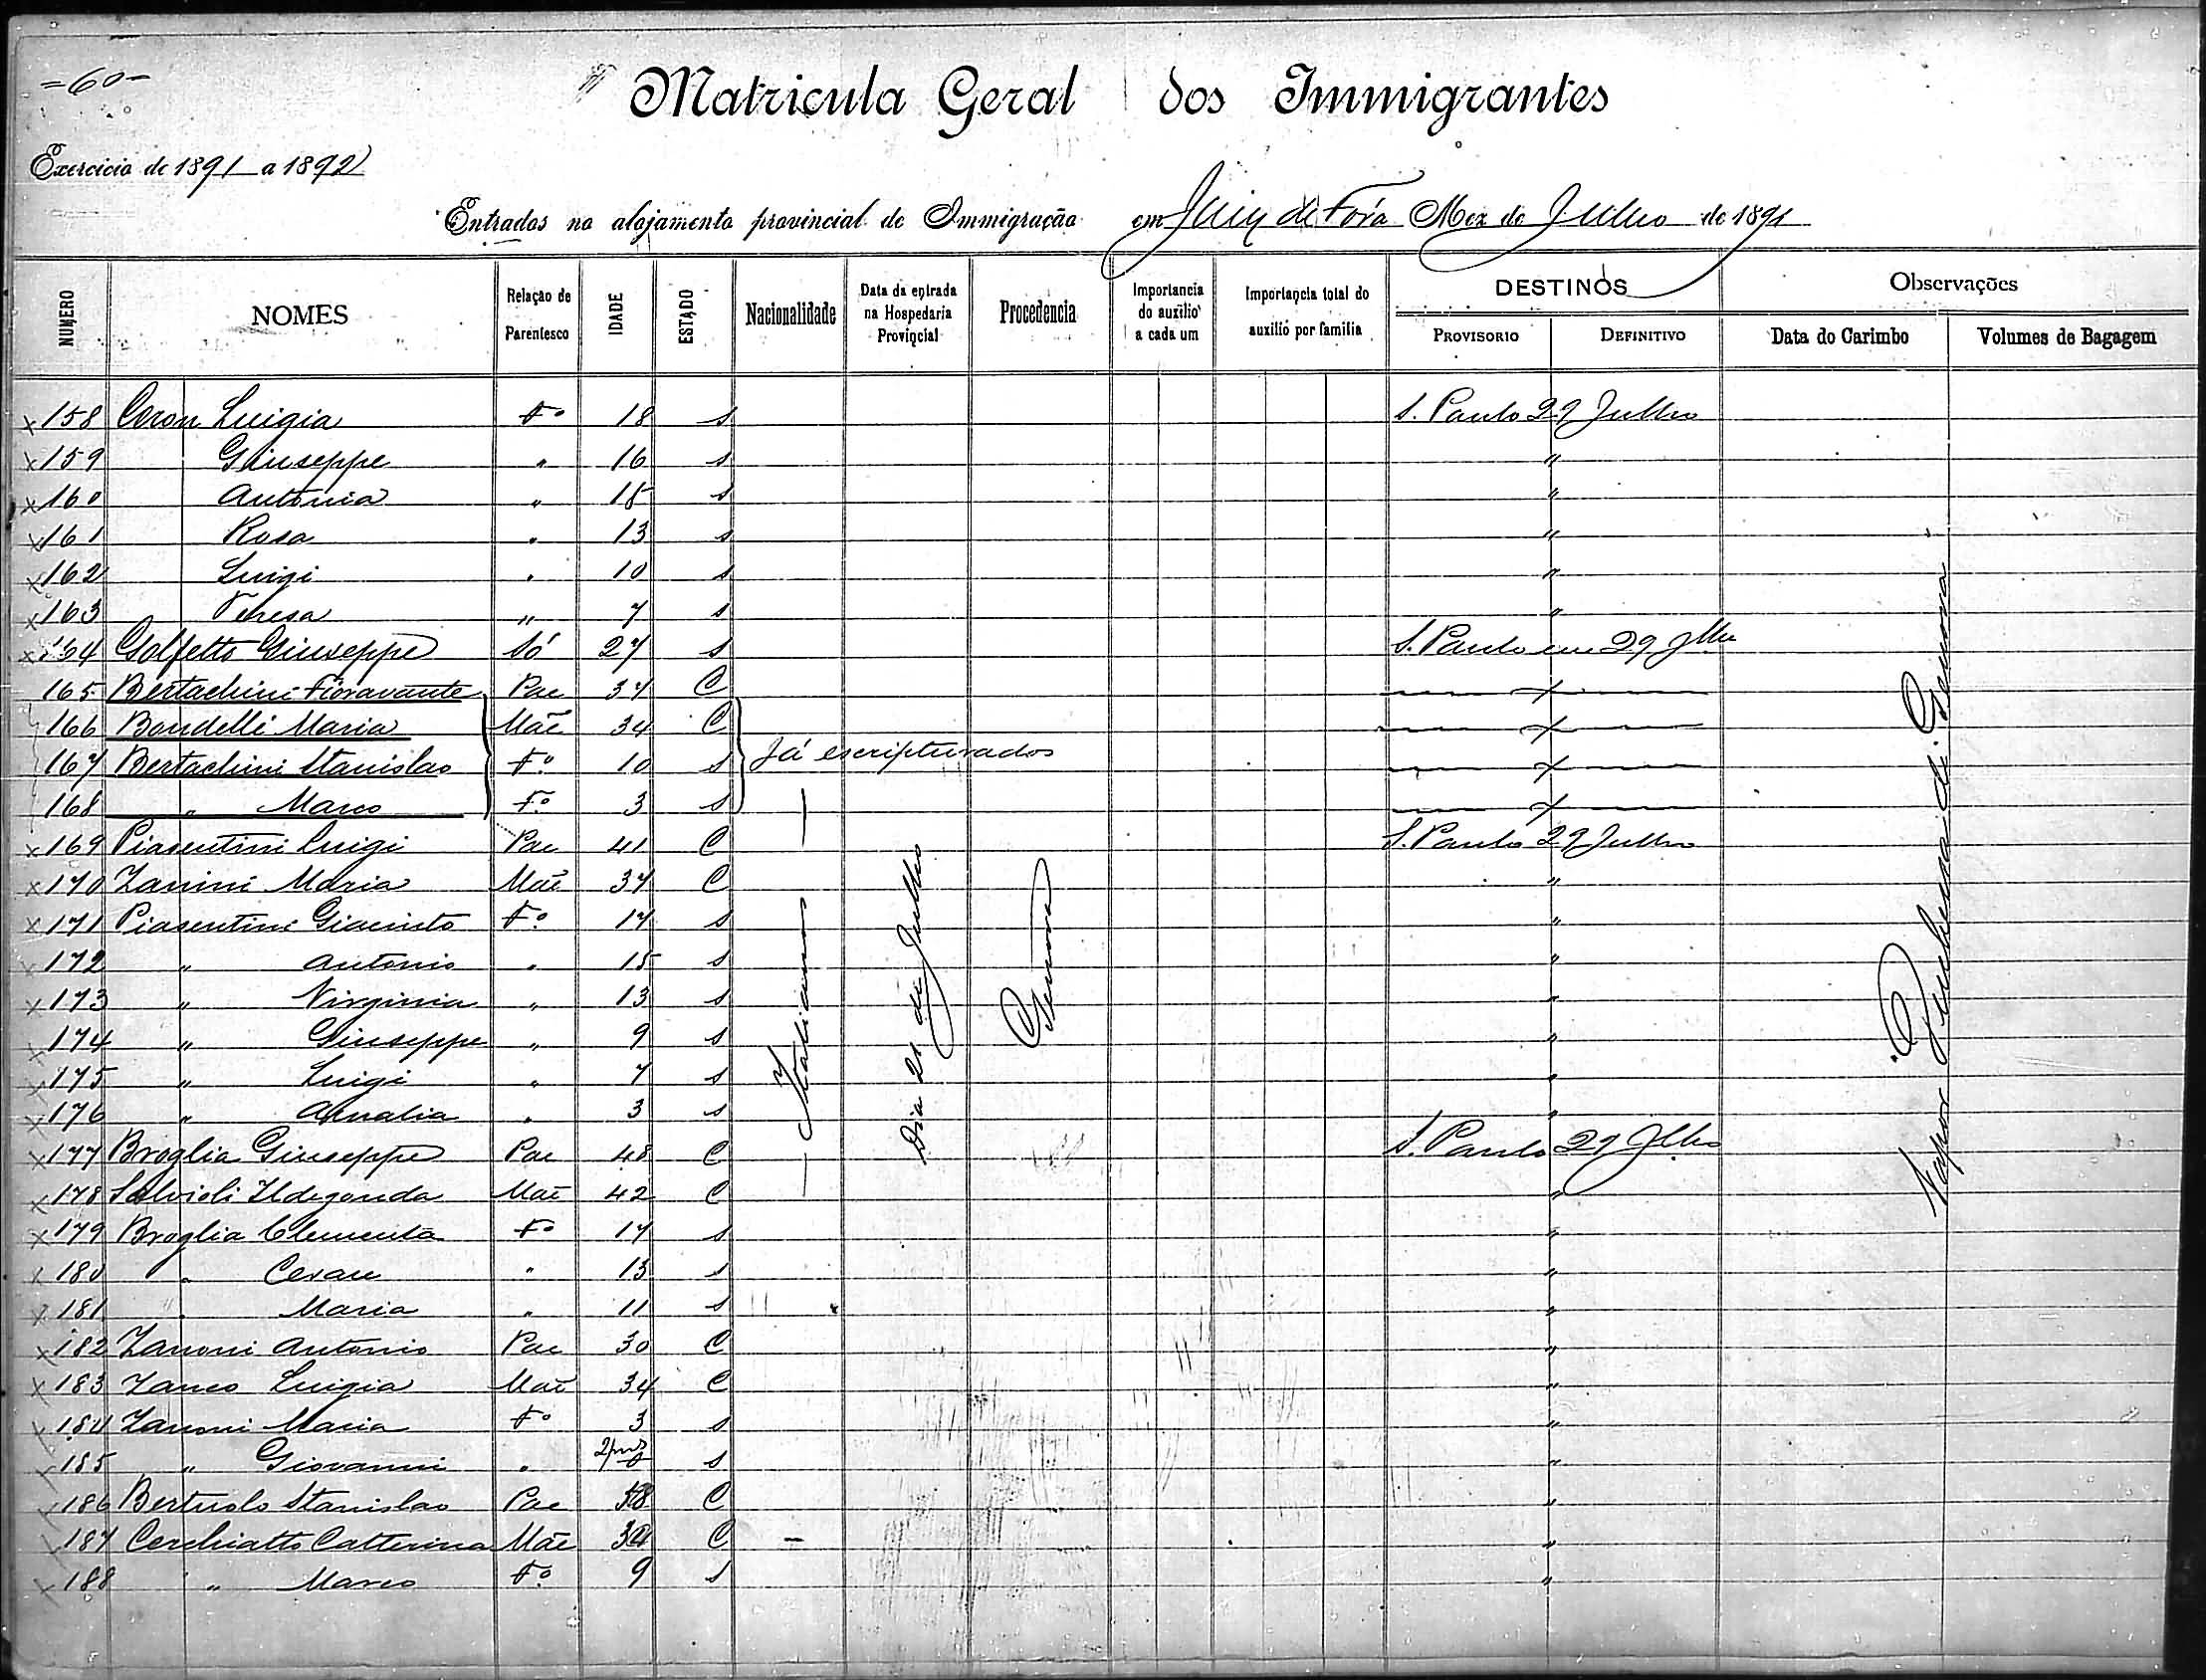 =60=
Matricula Geral dos Immigrantes
Exercicio de 1891 a 1892
Entrados no alojamento provincial de Immigração em Juiz de Fóra Mez de Julho de 1891
NUMERO NOMES Relação de Parentesco IDADE ESTADO Nacionalidade Data da entrada na Hospedaria Provincial Procedencia Importancia do auxilio a cada um Importancia total do auxilio por familia DESTINOS Observações
PROVISORIO DEFINITIVO Data do Carimbo Volumes de Bagagem
x 158 Ceron Luigia Fº 18 s S. Paulo 29 Julho
x 159 Giuseppe " 16 s "
x 160 Antonia " 15 s "
x 161 Rosa " 13 s "
x 162 Luigi " 10 s "
x 163 Teresa " 7 s "
x 164 Golfetto Giuseppe Só 27 s S. Paulo em 29 Jlho
165 Bertachini Fioravante Pae 37 C
166 Bondelli Maria Mãe 34 C
167 Bertachini Stanislao Fº 10 s Já escripturados
168 " Marco Fº 3 s
x 169 Piasentini Luigi Pae 41 C S. Paulo 29 Julho
x 170 Zanini Maria Mãe 37 C "
x 171 Piasentini Giacinto Fº 17 s "
x 172 " Antonio " 15 s "
x 173 " Virginia " 13 s "
x 174 " Giuseppe " 9 s "
x 175 " Luigi " 7 s "
x 176 " Amalia " 3 s "
x 177 Broglia Giuseppe Pae 48 C S. Paulo 29 Jlho
x 178 Salvioli Ildegonda Mãe 42 C "
x 179 Broglia Clementa Fº 17 s "
x 180 " Cesare " 13 s "
x 181 " Maria " 11 s "
x 182 Zanoni Antonio Pae 30 C "
x 183 Zanco Luigia Mãe 34 C "
x 184 Zanoni Maria Fº 3 s "
x 185 " Giovanni " 2 ms s "
x 186 Bertuolo Stanislao Pae 38 C "
x 187 Cerchiatto Catterina Mãe 34 C "
x 188 " Marco Fº 9 s "
Italianos
Dia 21 de Julho
Genova
Vapor "Duchessa di Genova